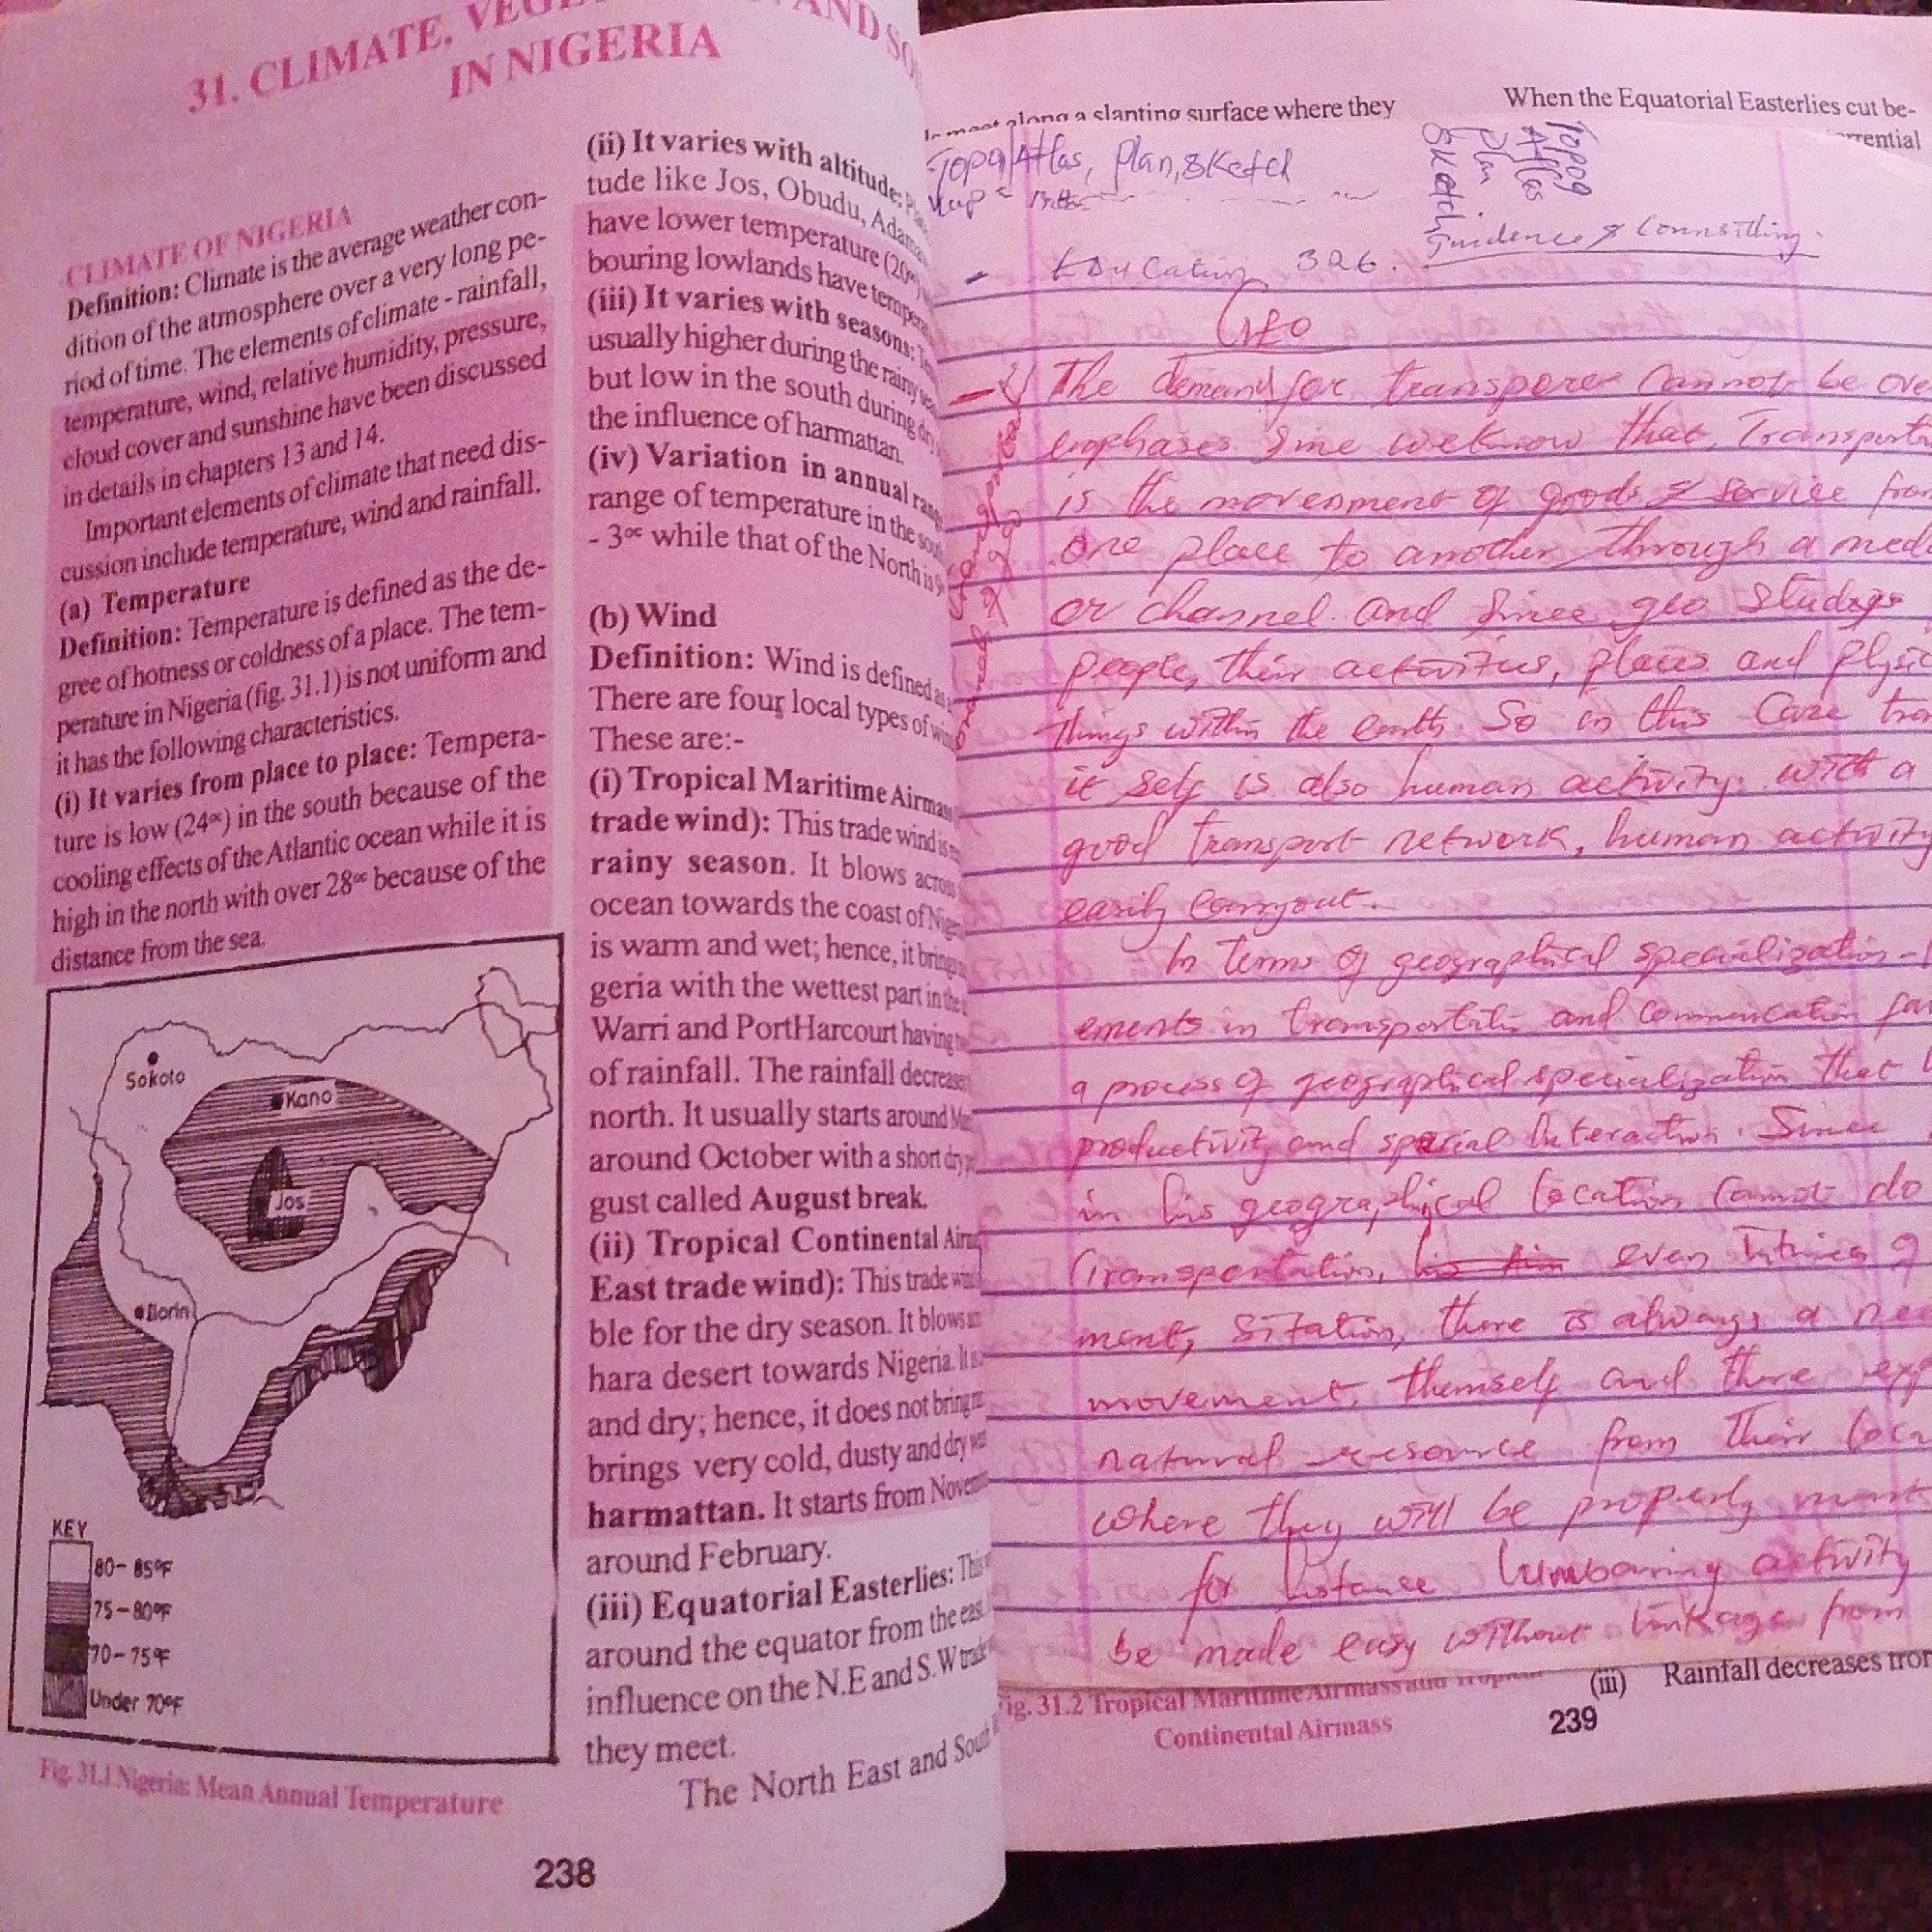 31. CLIMATE, AND SO
IN NIGERIA
CLIMATE OF NIGERIA
Definition: Climate is the average weather con-
dition of the atmosphere over a very long pe-
riod of time. The elements of climate - rainfall,
temperature, wind, relative humidity, pressure,
cloud cover and sunshine have been discussed
in details in chapters 13 and 14.
Important elements of climate that need dis-
cussion include temperature, wind and rainfall.
(a) Temperature
Definition: Temperature is defined as the de-
gree of hotness or coldness of a place. The tem-
perature in Nigeria (fig. 31.1) is not uniform and
it has the following characteristics.
(i) It varies from place to place: Tempera-
ture is low (24°c) in the south because of the
cooling effects of the Atlantic ocean while it is
high in the north with over 28°c because of the
distance from the sea.
Sokoto
Kano
Jos
Ilorin
KEY
80-85°F
75-80°F
70-75°F
Under 70°F
Fig. 31.1 Nigeria: Mean Annual Temperature
(ii) It varies with altitude:
tude like Jos, Obudu, Adama
have lower temperature (20°c)
bouring lowlands have tempera
(iii) It varies with seasons:
usually higher during the rainy
but low in the south during dry
the influence of harmattan.
(iv) Variation in annual rang
range of temperature in the sou
- 3°c while that of the North is
(b) Wind
Definition: Wind is defined as
There are four local types of win
These are:-
(i) Tropical Maritime Airmass
trade wind): This trade wind is
rainy season. It blows across
ocean towards the coast of Nige
is warm and wet; hence, it brings
geria with the wettest part in the
Warri and PortHarcourt having
of rainfall. The rainfall decrease
north. It usually starts around
around October with a short dry
gust called August break.
(ii) Tropical Continental Airm
East trade wind): This trade win
ble for the dry season. It blows
hara desert towards Nigeria. It
and dry; hence, it does not bring
brings very cold, dusty and dry
harmattan. It starts from Novem
around February.
(iii) Equatorial Easterlies: This
around the equator from the east
influence on the N.E and S.W trade
they meet.
The North East and South
238
meet along a slanting surface where they
When the Equatorial Easterlies cut be-
rrential
Topg/Atlas, plan, sketch
Map
Topog
Atlas
Plan
Sketch
Guidence & Counsilling.
- Education 326.
Geo
The demand for transporer cannot be ove
emphases Sine we know that, Transporta
is the movenment of goods & service from
one place to another, through a med
or channel. and since geo studys
people, their activitius, places and physic
things within the earth. So in this Case tra
it self is also human activity. with a
good transport network, human activity
easily carryout.
In terms of geographical specialization -
ements in transportatio and communication
a process of geographical specialization that
productivity and spacial Interaction. Since
in his geographical location cannot do
transportation, even
ment, Sitation, there is always a nee
movement, themself and there
natural resource from their loca
where they will be properly
for Instance lumbaring activity
be made easy without linkage from
Fig. 31.2 Tropical Maritime Airmass and Tropical
Continental Airmass
(iii) Rainfall decreases from
239